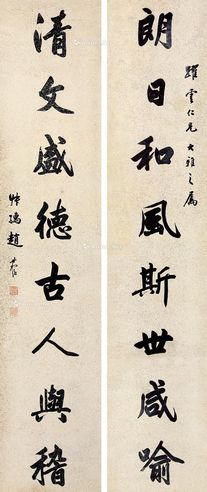 躍雲仁兄大雅之屬
朗日和風斯世咸喻
清文盛德古人與稽
趙